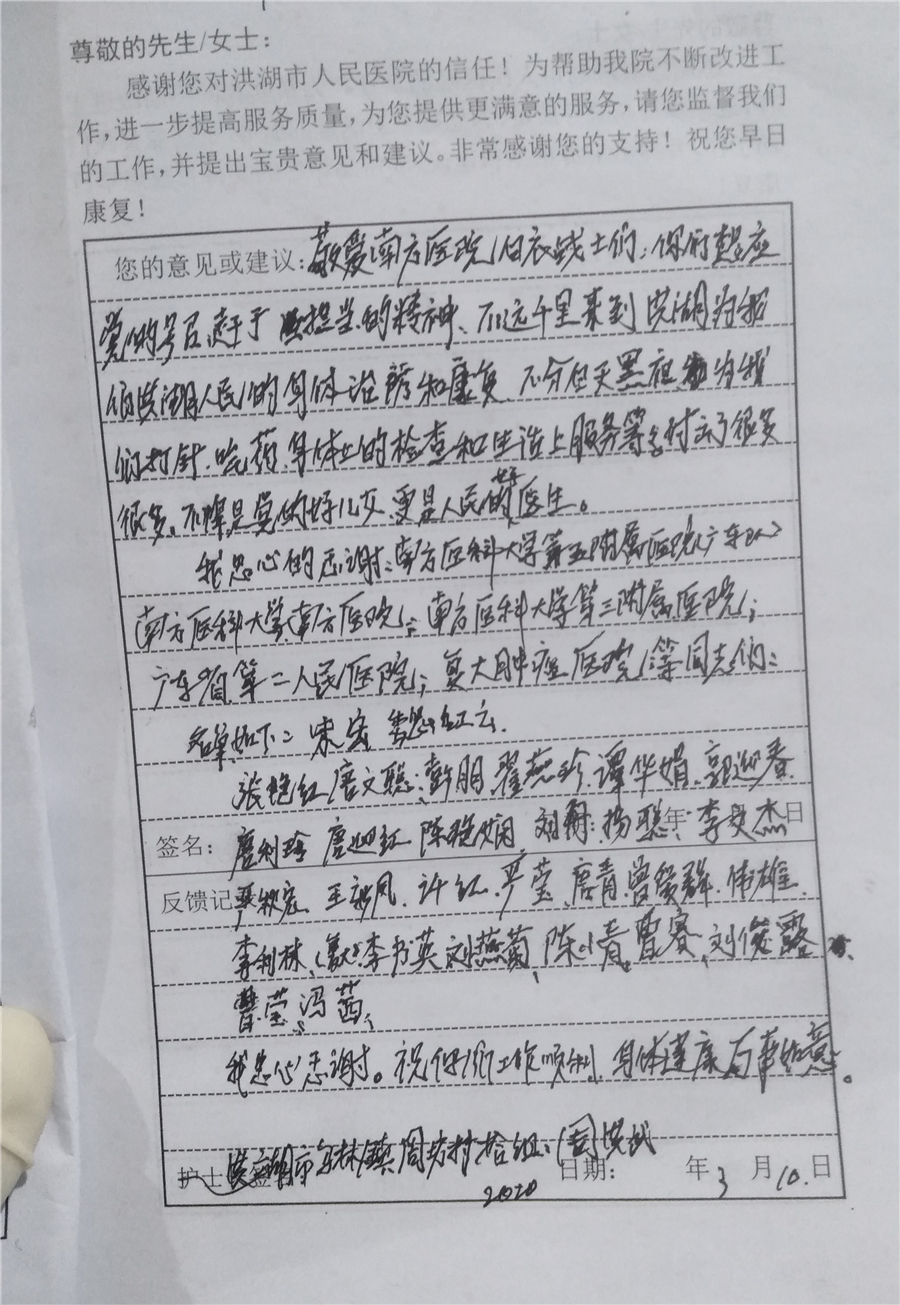 尊敬的先生/女士：
感谢您对洪湖市人民医院的信任！为帮助我院不断改进工
作，进一步提高服务质量，为您提供更满意的服务，请您监督我们
的工作，并提出宝贵意见和建议。非常感谢您的支持！祝您早日
康复！
您的意见或建议：敬爱南方医院白衣战士们：你们响应
党的号召，担当的精神、不远千里来到洪湖为我
们洪湖人民的身体治疗和康复 不分白天黑夜为我
们打针、吃药、身体上的检查和生活上服务等等付出了很多
很多。不愧是党的好儿女，更是人民的好医生。
我忠心的感谢：南方医科大学第五附属医院广东
南方医科大学南方医院；南方医科大学第三附属医院；
广东省第二人民医院；复大肿瘤医院等同志们：
名单如下：宋宏 红云
张艳红 唐文聪 彭朋 翟燕珍 谭华娟 郭迎春
签名：唐利珍 唐迎红 陈晓娴 刘 杨聪 年 李俊杰 日
反馈记 王新凤 许红 严莹 唐青 曾 群 伟雄
李利林 李书英 刘燕菊 陈小青 曹赛 刘俊露
曹莹 冯茜
我忠心感谢。祝你们工作顺利 身体健康 万事如意。
护士 签 洪湖市乌林镇周 村 组：周洪 日期： 年3月10日
2020